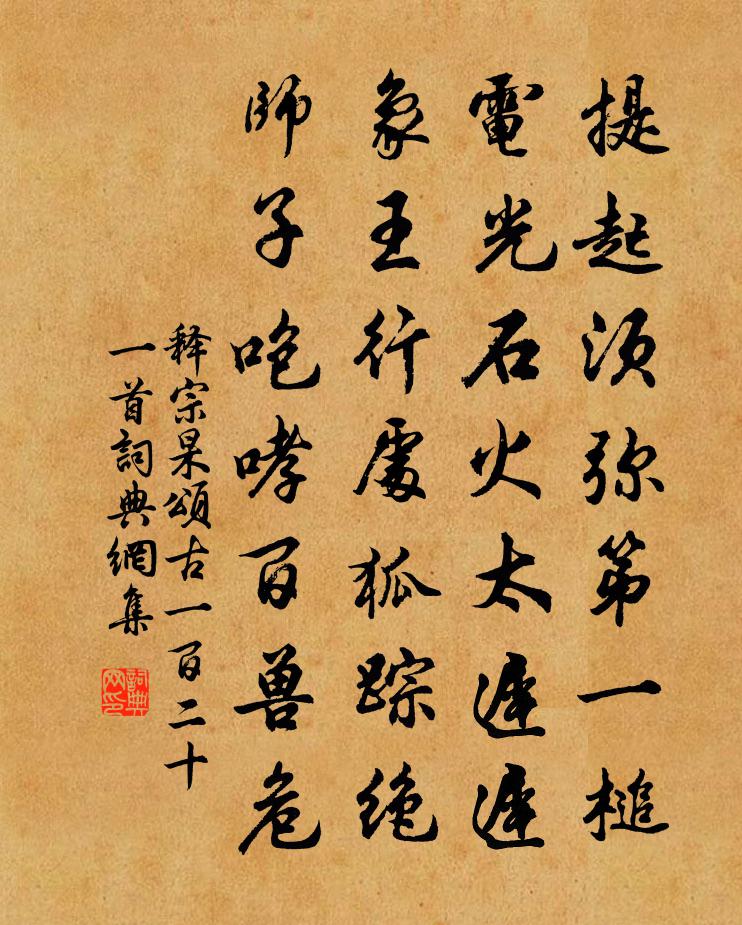 提起须弥第一槌
電光石火太遲遲
象王行處狐踪绝
師子咆哮百兽危
释宗杲頌古一百二十
一首詞典網集
詞典
网印